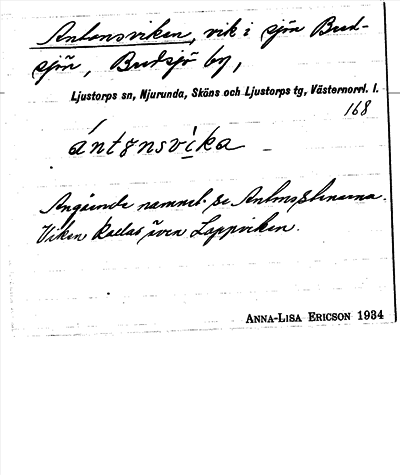 Antonsviken, vik i sjön Bred-
sjön, Bredsjö by,
Ljustorps sn, Njurunda, Sköns och Ljustorps tg, Västernorrl. l.
168
ántɤnsvi̲ka
Angående namnet se Antonsstenarna.
Viken kallas även Lappviken.
ANNA-LISA ERICSON 1934